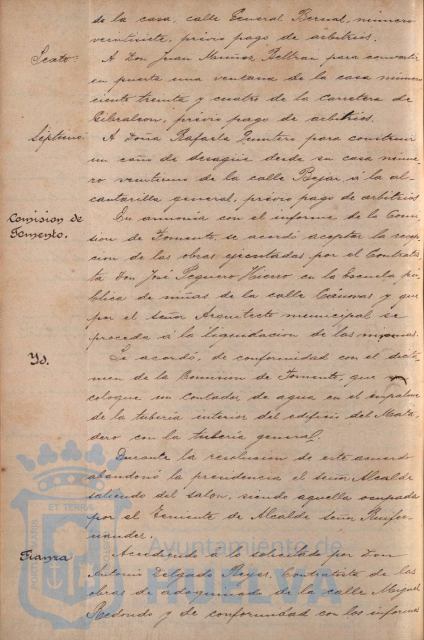 de la casa, calle General Bernal, número
veintisiete, previo pago de arbitrios.
Sexto. A Don Juan Muñoz Beltran para convertir
en puerta una ventana de la casa número
ciento treinta y cuatro de la Carretera de
Gibraleon, previo pago de arbitrios.
Séptimo. A Doña Rafaela Quintero para construir
un caño de desagüe desde su casa núme-
ro veintiuno de la calle Bejar, á la al-
cantarilla general, previo pago de arbitrios
Comision de Fomento. En armonia con el informe de la Comi-
sion de Fomento, se acordó aceptar la recep-
cion de las obras ejecutadas por el Contratis-
ta Don José Peguero Hierro en la Escuela pú-
blica de niñas de la calle Cánovas y que
por el señor Arquitecto municipal se
proceda á la liquidacion de las mismas.
Yd. Se acordó, de conformidad con el dictá-
men de la Comision de Fomento, que se
coloque un contador de agua en el empalme
de la tuberia interior del edificio del Mata-
dero con la tuberia general.
Durante la resolucion de este acuerdo
abandonó la presidencia el señor Alcalde
saliendo del salon, siendo aquella ocupada
por el Teniente de Alcalde señor Ruifer-
nandez.
Fianza Accediendo a lo solicitado por Don
Antonio Delgado Reyes, Contratista de las
obras de adoquinado de la calle Miguel
Redondo y de conformidad con los informes
Ayuntamiento de
HUELVA